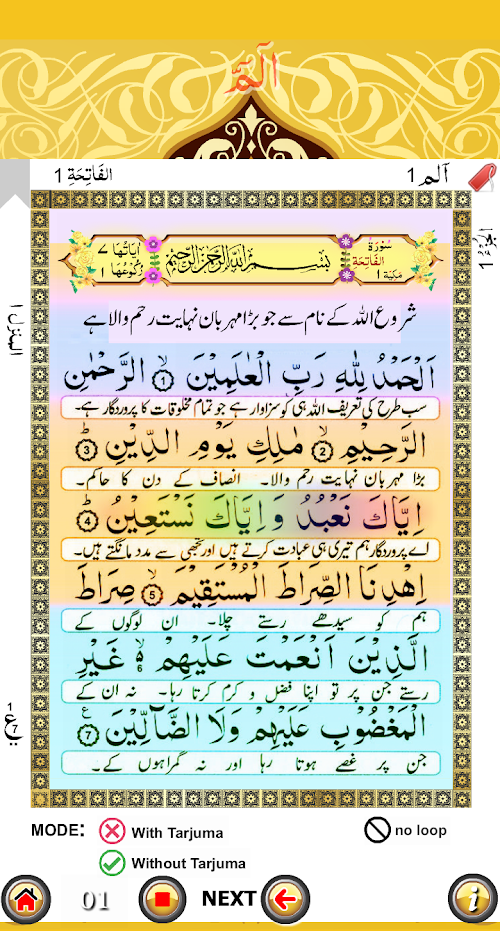 آلٓمّٓ
الفَاتِحَةِ 1
آلم 1
اٰیَاتُهَا ۷
رُكُوْعُهَا ۱
بِسْمِ اللّٰهِ الرَّحْمٰنِ الرَّحِیْمِ
سُوْرَةُ
الفَاتِحَة
مَكِّيَة ۱
شروع اللہ کے نام سے جو بڑا مہربان نہایت رحم والا ہے
اَلْحَمْدُ لِلّٰهِ رَبِّ الْعٰلَمِیْنَ ۱ الرَّحْمٰنِ
سب طرح کی تعریف اللہ ہی کو سزاوار ہے جو تمام مخلوقات کا پروردگار ہے۔
الرَّحِیْمِ ۲ مٰلِكِ یَوْمِ الدِّیْنِ ۳
بڑا مہربان نہایت رحم والا۔ انصاف کے دن کا حاکم۔
اِیَّاكَ نَعْبُدُ وَ اِیَّاكَ نَسْتَعِیْنُ ۴
اے پروردگار ہم تیری ہی عبادت کرتے ہیں اور تجھی سے مدد مانگتے ہیں۔
اِهْدِنَا الصِّرَاطَ الْمُسْتَقِیْمَ ۵ صِرَاطَ
ہم کو سیدھے رستے چلا۔ ان لوگوں کے
الَّذِیْنَ اَنْعَمْتَ عَلَیْهِمْ ۶ غَیْرِ
رستے جن پر تو اپنا فضل و کرم کرتا رہا۔ نہ ان کے
الْمَغْضُوْبِ عَلَیْهِمْ وَ لَا الضَّآلِّیْنَ ۷
جن پر غصے ہوتا رہا اور نہ گمراہوں کے۔
الجزء 1
المنزل ۱
MODE:
With Tarjuma
no loop
Without Tarjuma
01
NEXT
i